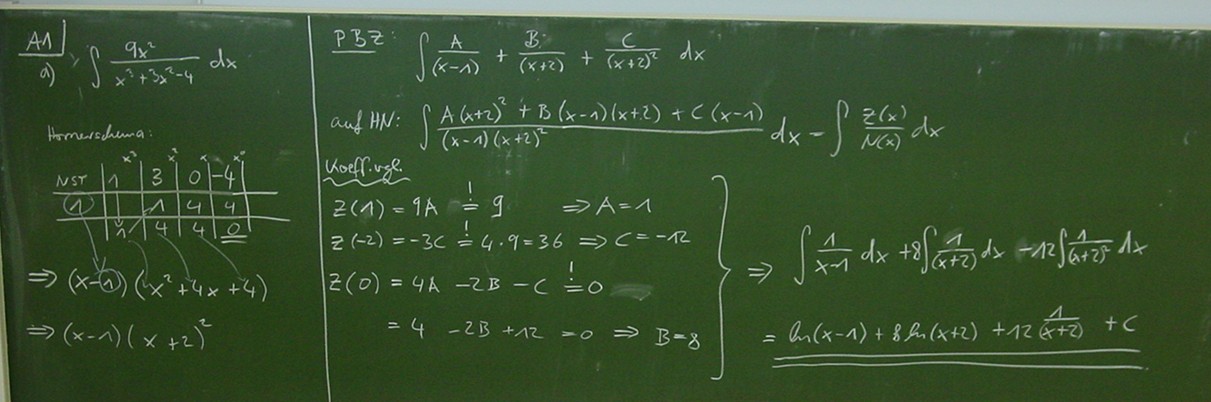 A1
a) ∫ 9x² / (x³+3x²-4) dx
Hornerschema:
x³ x² x x⁰
NST | 1 | 3 | 0 | -4
1 | | 1 | 4 | 4
| 1 | 4 | 4 | 0
⇒ (x-1)(1x²+4x+4)
⇒ (x-1)(x+2)²
PBZ: ∫ A/(x-1) + B/(x+2) + C/(x+2)² dx
auf HN: ∫ (A(x+2)² + B(x-1)(x+2) + C(x-1)) / ((x-1)(x+2)²) dx = ∫ Z(x)/N(x) dx
Koeff.vgl.
Z(1) = 9A =! 9 ⇒ A=1
Z(-2) = -3C =! 4·9=36 ⇒ C=-12
Z(0) = 4A -2B -C =! 0
= 4 -2B +12 =0 ⇒ B=8
⇒ ∫ 1/(x-1) dx +8∫ 1/(x+2) dx -12∫ 1/(x+2)² dx
= ln(x-1) + 8 ln(x+2) +12 1/(x+2) + C